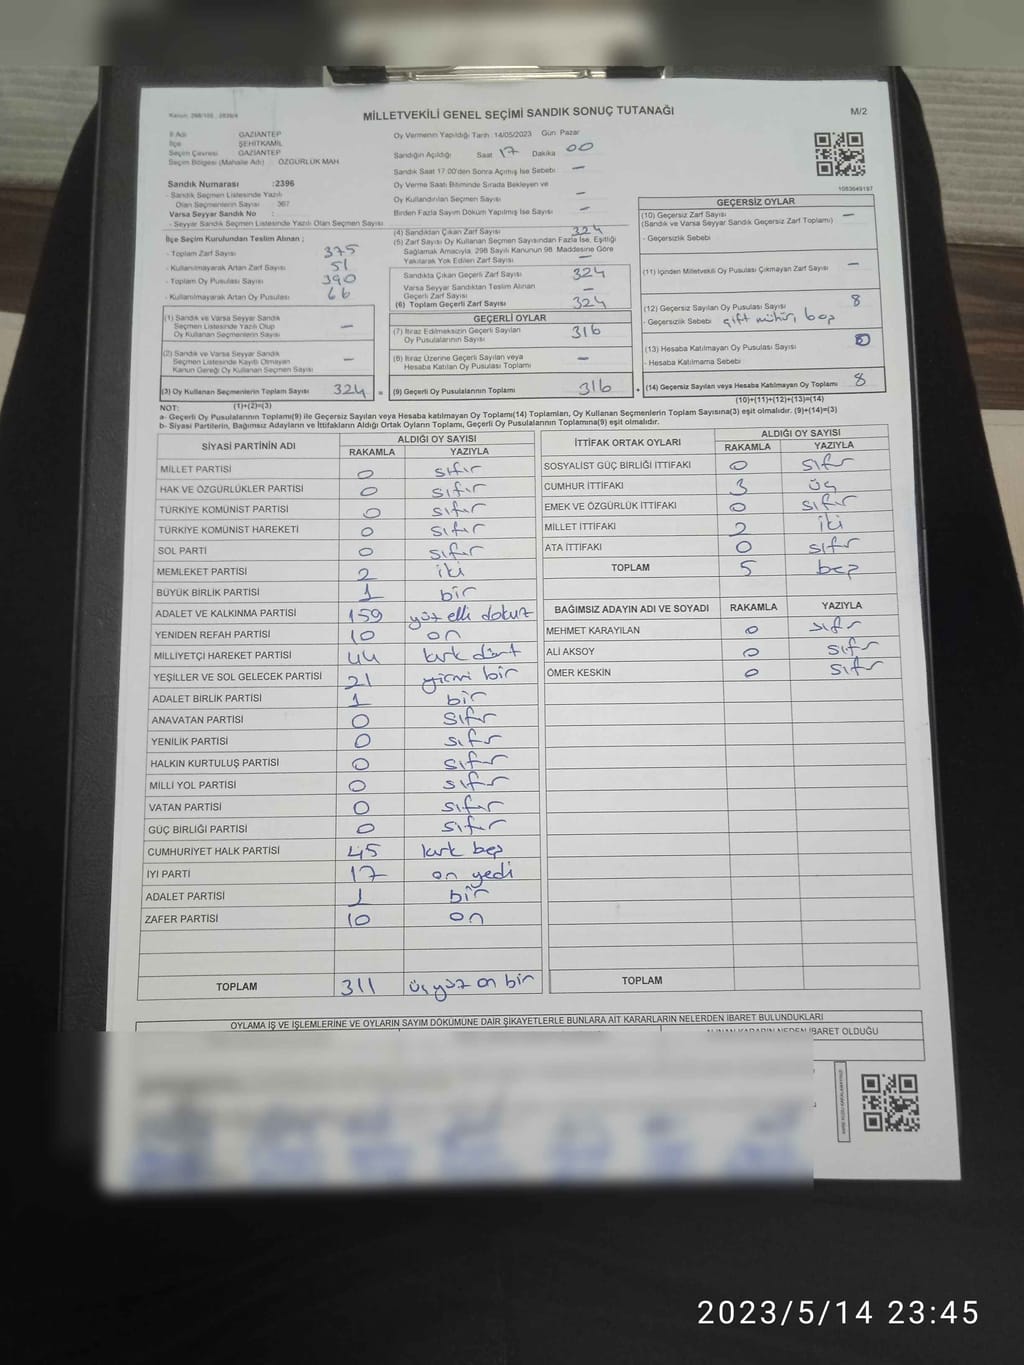 MİLLETVEKİLİ GENEL SEÇİMİ SANDIK SONUÇ TUTANAĞI
M/2
İl Adı : GAZİANTEP
İlçe : ŞEHİTKAMİL
Seçim Çevresi : GAZİANTEP
Seçim Bölgesi (Mahalle Adı) : ÖZGÜRLÜK MAH
Sandık Numarası :2396
- Sandık Seçmen Listesinde Yazılı
Olan Seçmenlerin Sayısı : 367
Varsa Seyyar Sandık No :
- Seyyar Sandık Seçmen Listesinde Yazılı Olan Seçmen Sayısı
İlçe Seçim Kurulundan Teslim Alınan ;
- Toplam Zarf Sayısı 375
- Kullanılmayarak Artan Zarf Sayısı 51
- Toplam Oy Pusulası Sayısı 390
- Kullanılmayarak Artan Oy Pusulası 66
(1) Sandık ve Varsa Seyyar Sandık
Seçmen Listesinde Yazılı Olup
Oy Kullanan Seçmenlerin Sayısı —
(2) Sandık ve Varsa Seyyar Sandık
Seçmen Listesinde Kayıtlı Olmayan
Kanun Gereği Oy Kullanan Seçmen Sayısı —
(3) Oy Kullanan Seçmenlerin Toplam Sayısı 324 =
(1)+(2)=(3)
Oy Vermenin Yapıldığı Tarih :14/05/2023 Gün Pazar
Sandığın Açıldığı Saat 17 Dakika 00
Sandık Saat 17.00'den Sonra Açılmış İse Sebebi —
Oy Verme Saati Bitiminde Sırada Bekleyen ve
Oy Kullandırılan Seçmen Sayısı —
Birden Fazla Sayım Döküm Yapılmış İse Sayısı —
(4) Sandıktan Çıkan Zarf Sayısı 324
(5) Zarf Sayısı Oy Kullanan Seçmen Sayısından Fazla İse, Eşitliği
Sağlamak Amacıyla, 298 Sayılı Kanunun 98. Maddesine Göre
Yakılarak Yok Edilen Zarf Sayısı —
Sandıkta Çıkan Geçerli Zarf Sayısı 324
Varsa Seyyar Sandıktan Teslim Alınan
Geçerli Zarf Sayısı —
(6) Toplam Geçerli Zarf Sayısı 324
GEÇERLİ OYLAR
(7) İtiraz Edilmeksizin Geçerli Sayılan
Oy Pusulalarının Sayısı 316
(8) İtiraz Üzerine Geçerli Sayılan veya
Hesaba Katılan Oy Pusulası Toplamı —
(9) Geçerli Oy Pusulalarının Toplamı 316 +
1083649197
GEÇERSİZ OYLAR
(10) Geçersiz Zarf Sayısı —
(Sandık ve Varsa Seyyar Sandık Geçersiz Zarf Toplamı)
- Geçersizlik Sebebi
(11) İçinden Milletvekili Oy Pusulası Çıkmayan Zarf Sayısı —
(12) Geçersiz Sayılan Oy Pusulası Sayısı 8
- Geçersizlik Sebebi çift mühür, boş
(13) Hesaba Katılmayan Oy Pusulası Sayısı 0
- Hesaba Katılmama Sebebi
(14) Geçersiz Sayılan veya Hesaba Katılmayan Oy Toplamı 8
(10)+(11)+(12)+(13)=(14)
NOT:
a- Geçerli Oy Pusulalarının Toplamı(9) ile Geçersiz Sayılan veya Hesaba katılmayan Oy Toplamı(14) Toplamları, Oy Kullanan Seçmenlerin Toplam Sayısına(3) eşit olmalıdır. (9)+(14)=(3)
b- Siyasi Partilerin, Bağımsız Adayların ve İttifakların Aldığı Oyların Toplamı, Geçerli Oy Pusulalarının Toplamına(9) eşit olmalıdır.
SİYASİ PARTİNİN ADI ALDIĞI OY SAYISI
RAKAMLA YAZIYLA
MİLLET PARTİSİ 0 sıfır
HAK VE ÖZGÜRLÜKLER PARTİSİ 0 sıfır
TÜRKİYE KOMÜNİST PARTİSİ 0 sıfır
TÜRKİYE KOMÜNİST HAREKETİ 0 sıfır
SOL PARTİ 0 sıfır
MEMLEKET PARTİSİ 2 iki
BÜYÜK BİRLİK PARTİSİ 1 bir
ADALET VE KALKINMA PARTİSİ 159 yüz elli dokuz
YENİDEN REFAH PARTİSİ 10 on
MİLLİYETÇİ HAREKET PARTİSİ 44 kırk dört
YEŞİLLER VE SOL GELECEK PARTİSİ 21 yirmi bir
ADALET BİRLİK PARTİSİ 1 bir
ANAVATAN PARTİSİ 0 sıfır
YENİLİK PARTİSİ 0 sıfır
HALKIN KURTULUŞ PARTİSİ 0 sıfır
MİLLİ YOL PARTİSİ 0 sıfır
VATAN PARTİSİ 0 sıfır
GÜÇ BİRLİĞİ PARTİSİ 0 sıfır
CUMHURİYET HALK PARTİSİ 45 kırk beş
İYİ PARTİ 17 on yedi
ADALET PARTİSİ 1 bir
ZAFER PARTİSİ 10 on
TOPLAM 311 üçyüz on bir
İTTİFAK ORTAK OYLARI ALDIĞI OY SAYISI
RAKAMLA YAZIYLA
SOSYALİST GÜÇ BİRLİĞİ İTTİFAKI 0 sıfır
CUMHUR İTTİFAKI 3 üç
EMEK VE ÖZGÜRLÜK İTTİFAKI 0 sıfır
MİLLET İTTİFAKI 2 iki
ATA İTTİFAKI 0 sıfır
TOPLAM 5 beş
BAĞIMSIZ ADAYIN ADI VE SOYADI RAKAMLA YAZIYLA
MEHMET KARAYILAN 0 sıfır
ALİ AKSOY 0 sıfır
ÖMER KESKİN 0 sıfır
TOPLAM
OYLAMA İŞ VE İŞLEMLERİNE VE OYLARIN SAYIM DÖKÜMÜNE DAİR ŞİKAYETLERLE BUNLARA AİT KARARLARIN NELERDEN İBARET BULUNDUKLARI
ALINAN KARARIN NEDEN İBARET OLDUĞU
2023/5/14 23:45